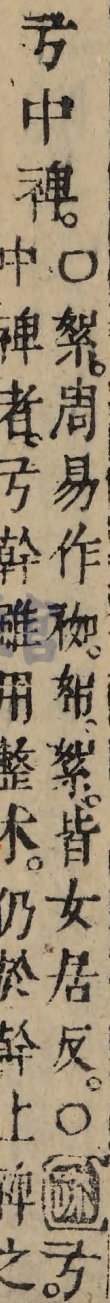 弓中裨。
○絮。周易作袽。帤、絮。皆女居反。○疏弓
中裨者。弓幹雖用整木。仍於幹上裨之。